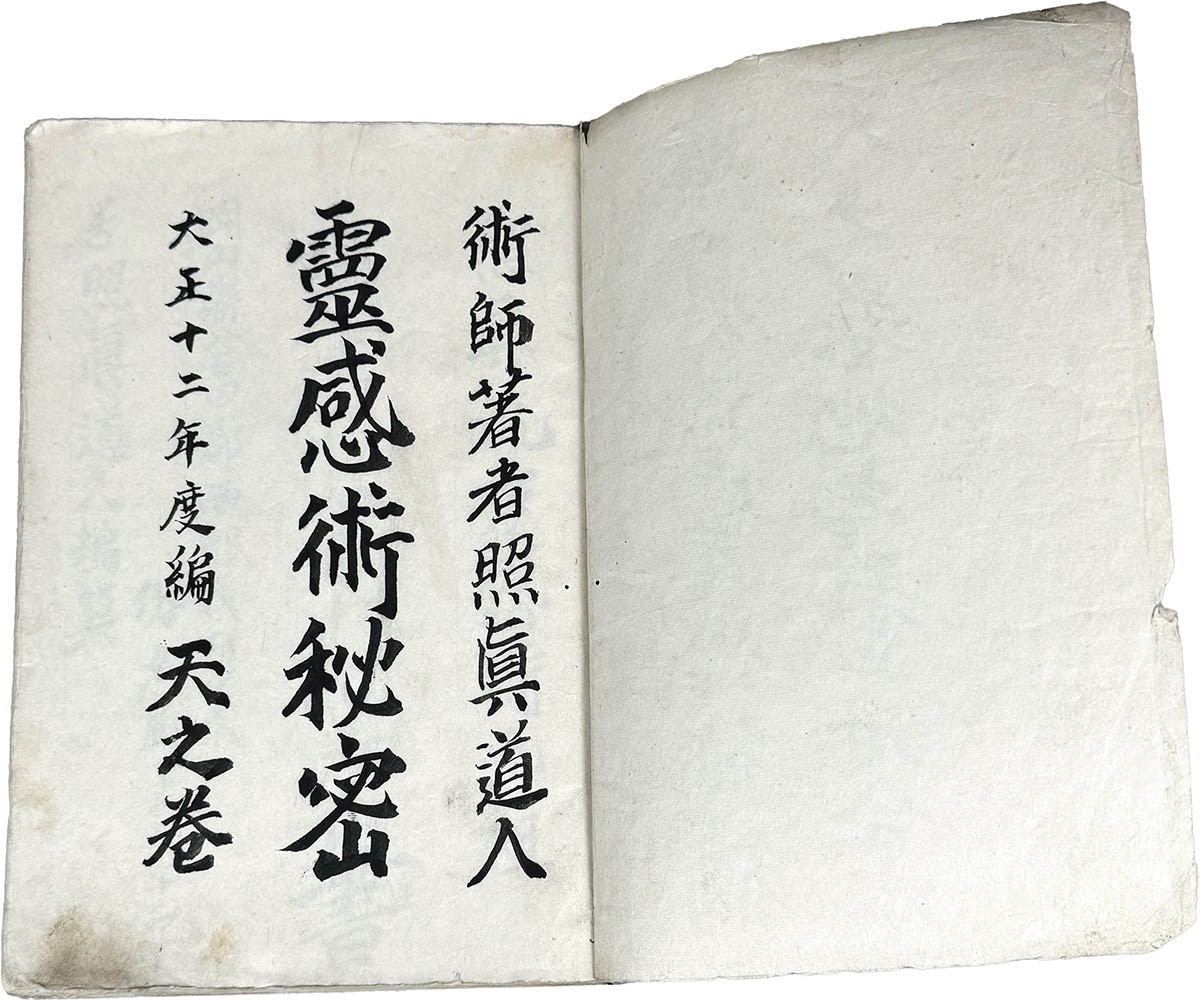 術師著者照眞道人
靈感術秘密
大正十二年度編 天之卷